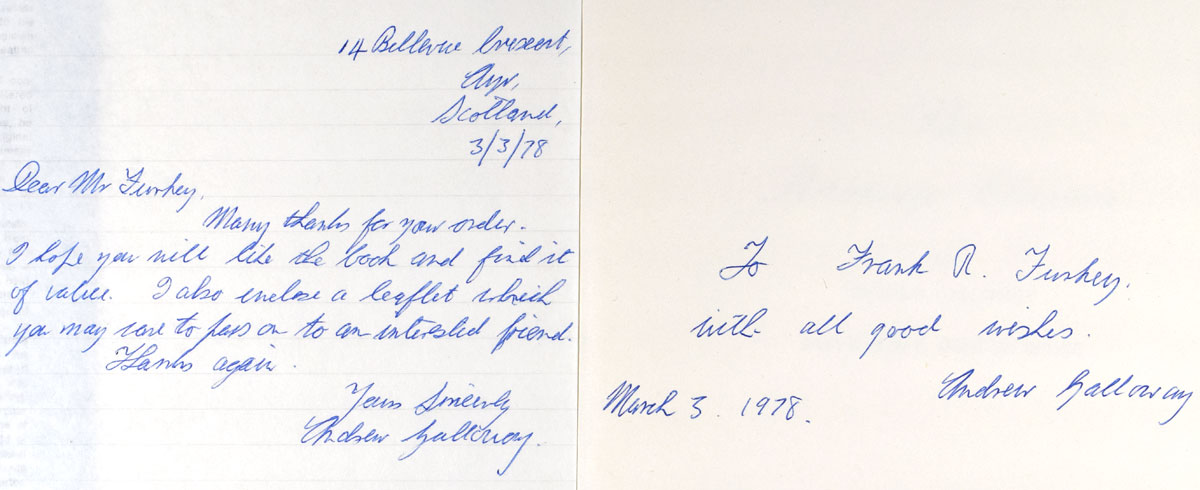 14 Bellevue Crescent,
Ayr,
Scotland,
3/3/78
Dear Mr Furhey,
Many thanks for your order.
I hope you will like the book and find it
of value. I also enclose a leaflet which
you may care to pass on to an interested friend.
Thanks again.
Yours Sincerely
Andrew Galloway.
To Frank R. Furhey.
with all good wishes.
Andrew Galloway
March 3. 1978.